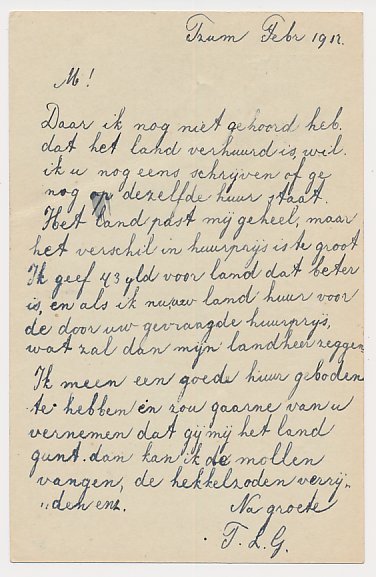 Tzum Febr 1912.
M!
Daar ik nog niet gehoord heb.
dat het land verhuurd is, wil.
ik u nog eens schrijven of ge
nog op dezelfde huur staat.
Het land past mij geheel, maar
het verschil in huurprijs is te groot
Ik geef 43 gld voor land dat beter
is, en als ik nu uw land huur voor
de door uw gevraagde huurprijs,
wat zal dan mijn landheer zeggen
Ik meen een goede huur geboden
te hebben en zou gaarne van u
vernemen dat gij mij het land
gunt. dan kan ik de mollen
vangen, de hekkelzoden verrij„
„den enz. Na groete
T. L. G.